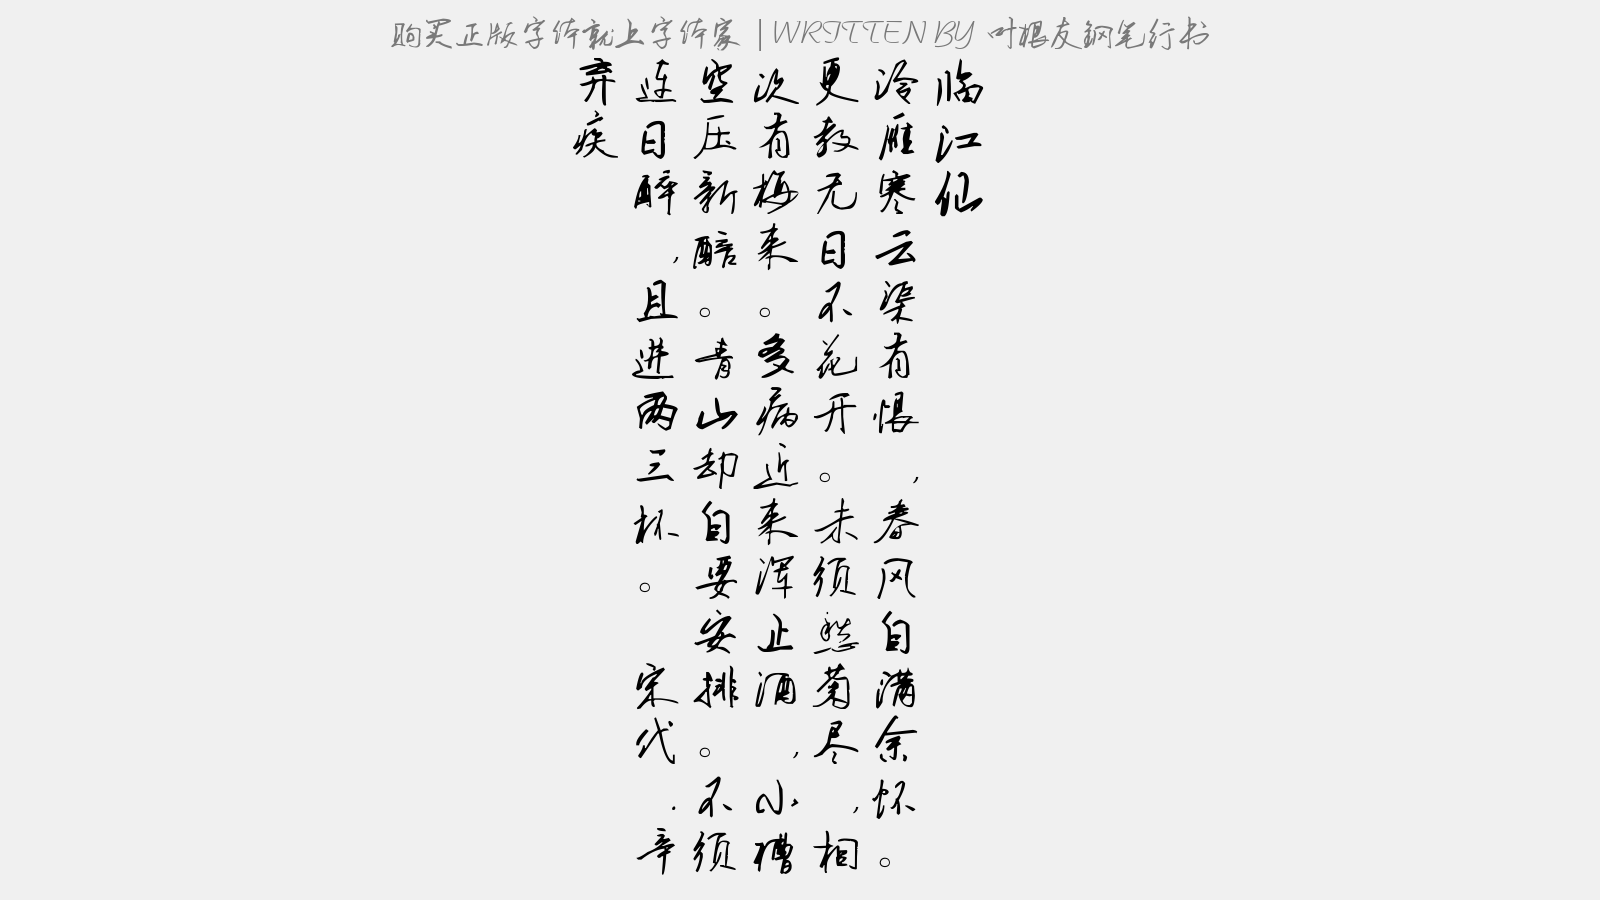 购买正版字体就上字体家 | WRITTEN BY 叶根友钢笔行书
临江仙
冷雁寒云渠有恨，春风自满余怀。
更教无日不花开。未须愁菊尽，相
次有梅来。多病近来浑止酒，小槽
空压新醅。青山却自要安排。不须
连日醉，且进两三杯。 宋代·辛
弃疾